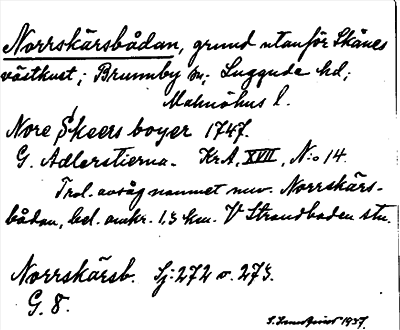 Norrskärsbådan, grund utanför Skånes
västkust; Brunnby sn; Luggude hd;
Malmöhus l.
Nore Skeers boyer 1747.
G. Adlerstierna. KrA, XVIII, N:o 14.
Trol. avsåg namnet nuv. Norrskärs-
bådan, bel. omkr. 1,5 km. V Strandbaden stn.
Norrskärsb. Sj: 272 o. 273.
G. 8.
1937.